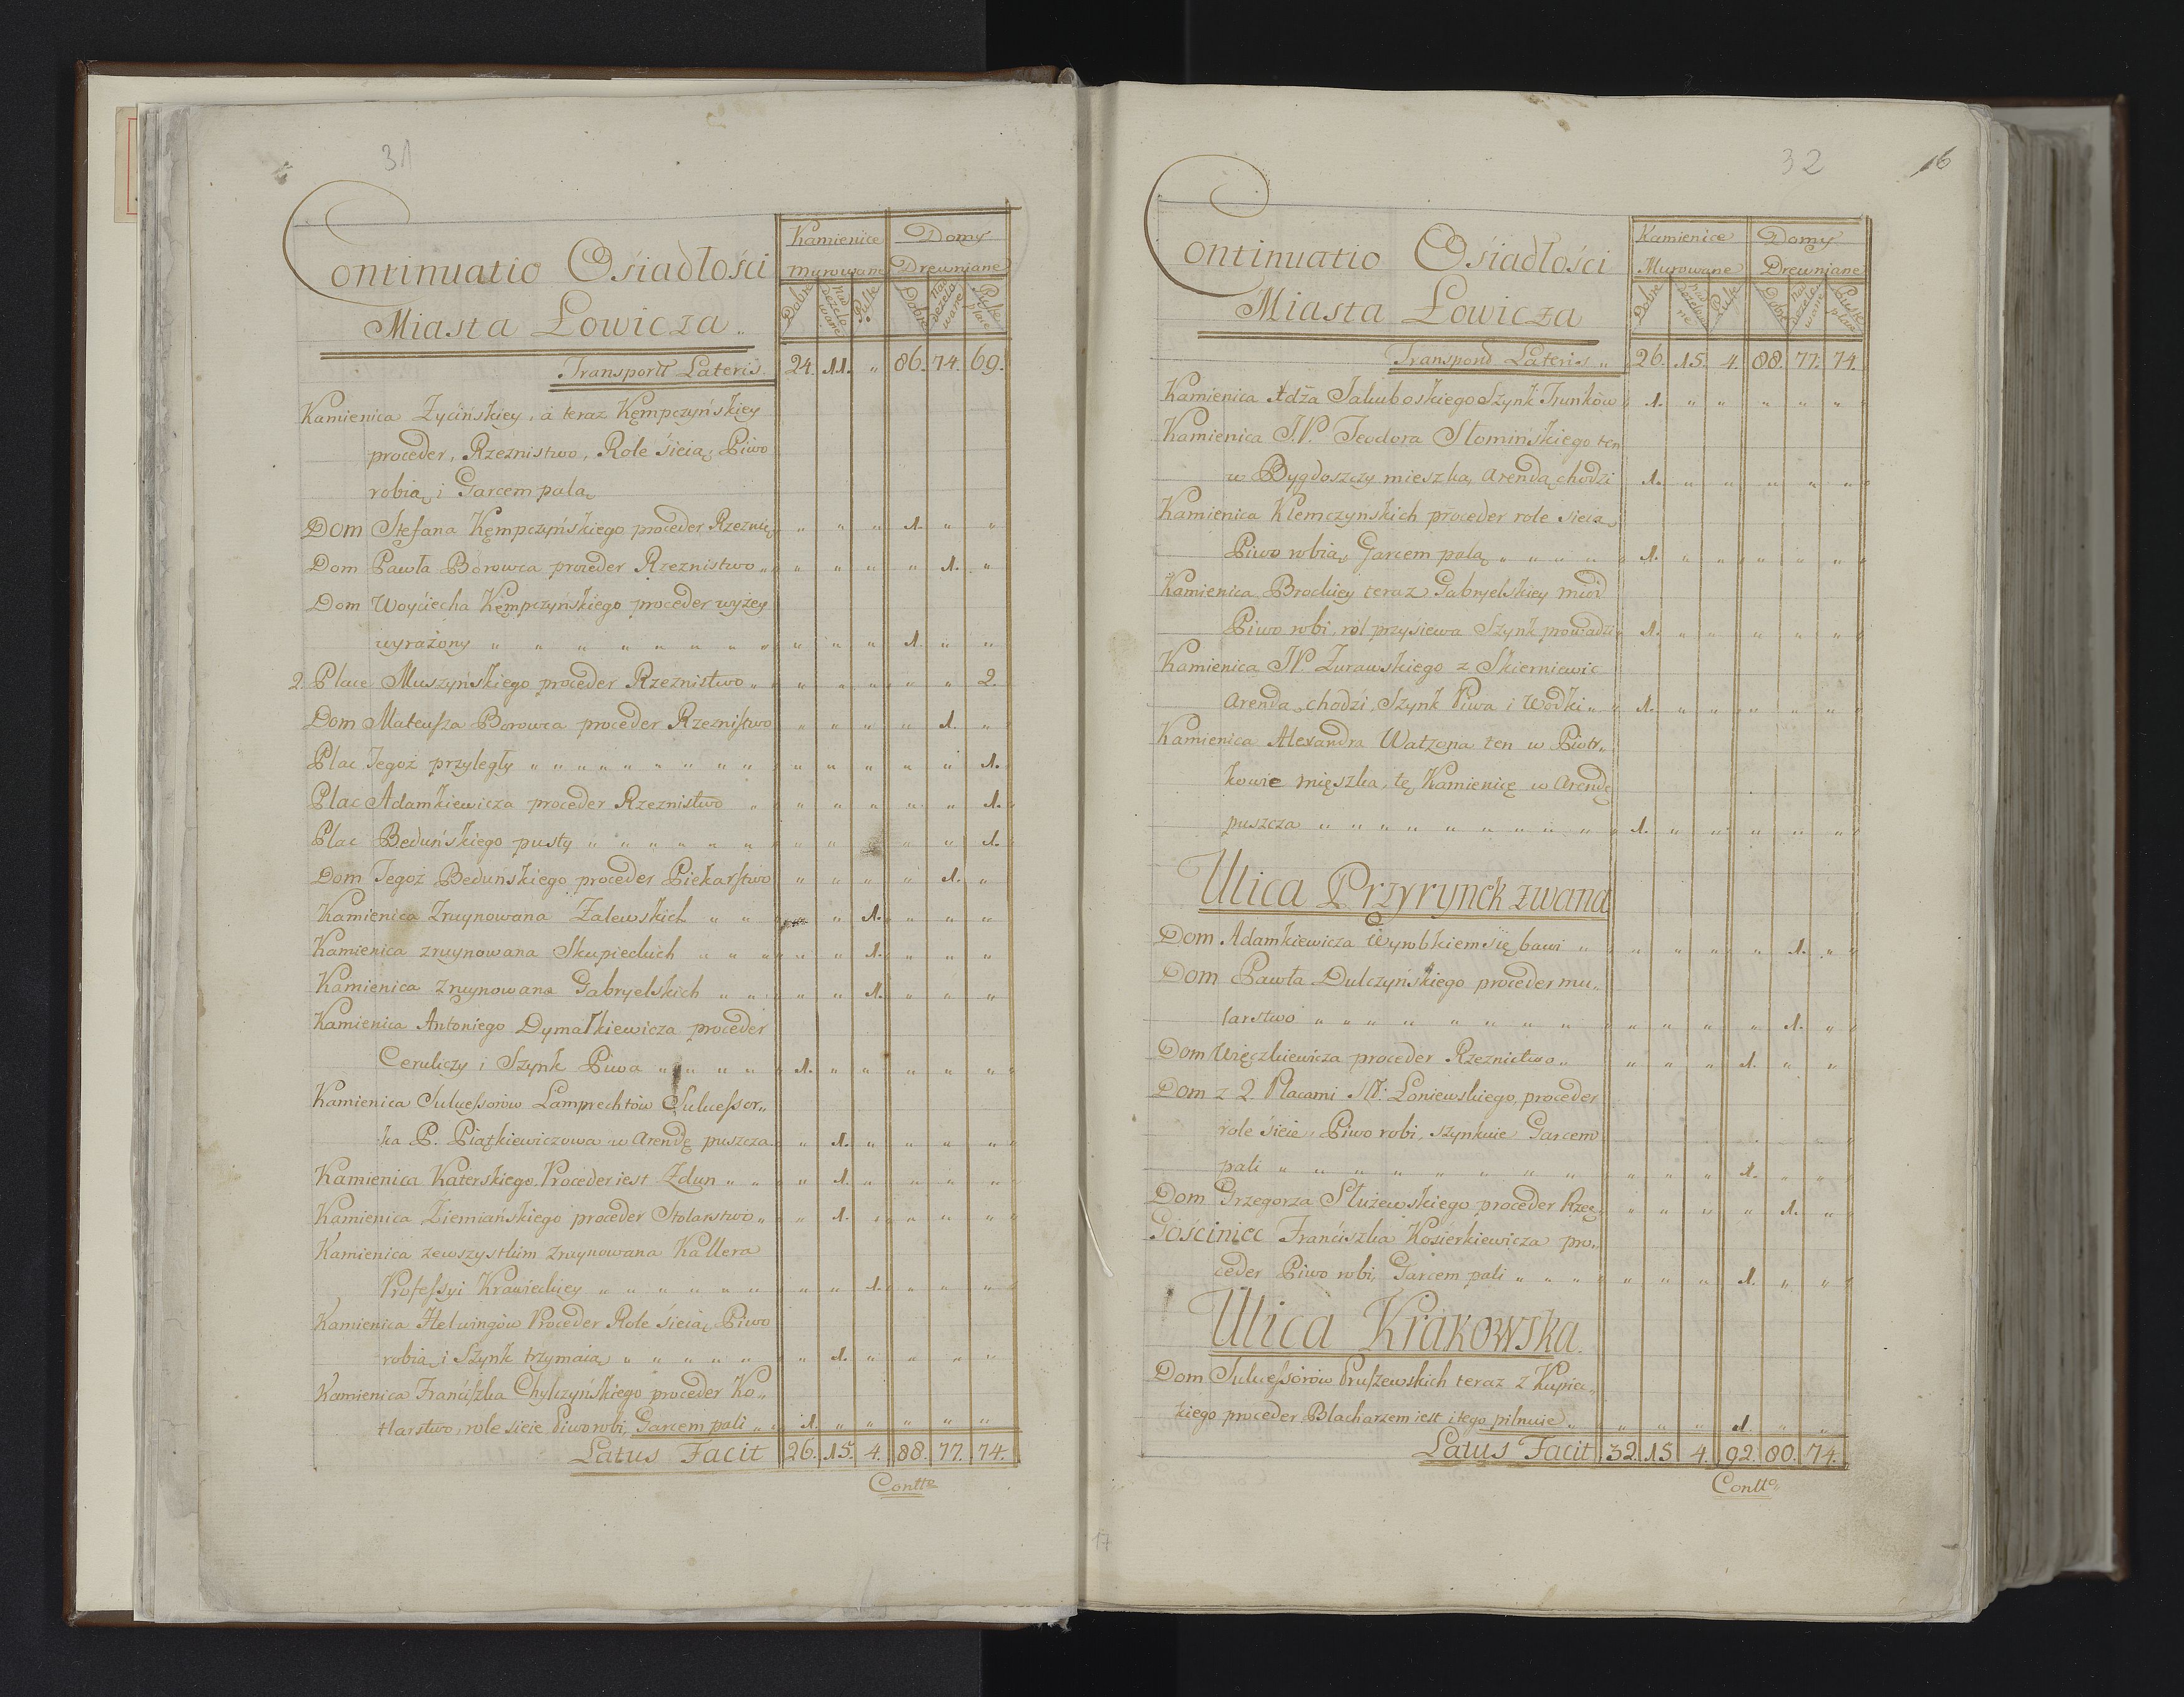 31
Continuatio Osiadłości
Miasta Łowicza „
Kamienice murowane | Domy Drewniane
Dobre | naddezelowane | Puste | Dobre | naddezelowane | Puste place
Transportt Lateris. 24. 11. „ 86. 74. 69.
Kamienica Zycińskiey, a teraz Kęmpczyńskiey
proceder, Rzeznistwo, Role sieią, Piwo
robią, i Garcem palą
Dom Stefana Kęmpczyńskiego proceder Rzezniczy „ „ „ 1. „ „
Dom Pawła Borowca proceder Rzeznistwo „ „ „ „ „ 1. „
Dom Woyciecha Kęmpczyńskiego proceder wyżey
wyrażony „ „ „ „ „ „ „ „ „ „ 1. „ „
2. Place Muszyńskiego proceder Rzeznistwo „ „ „ „ „ „ 2.
Dom Mateusza Borowca proceder Rzeznistwo „ „ „ „ 1. „
Plac Tegoż przyległy „ „ „ „ „ „ „ „ „ „ „ „ „ „ „ 1.
Plac Adamkiewicza proceder Rzeznistwo „ „ „ „ „ „ 1.
Plac Beduńskiego pusty „ „ „ „ „ „ „ „ „ „ „ 1.
Dom Tegoż Bedunskiego proceder Piekarstwo „ „ „ „ 1. „
Kamienica Zruynowana Zalewskich „ „ „ „ 1. „ „ „
Kamienica zruynowana Skupieckich „ „ „ „ „ 1. „ „ „
Kamienica Zruynowana Gabryelskich „ „ „ „ 1. „ „ „
Kamienica Antoniego Dymałkiewicza proceder
Cerulczy i Szynk Piwa „ „ „ „ 1. „ „ „ „ „
Kamienica Sukcessorow Lamprechtow Sukcessor„
ka P. Piątkiewiczowa w Arendę puszcza „ „ 1. „ „ „ „
Kamienica Katerskiego. Proceder iest Zdun „ „ „ 1. „ „ „ „
Kamienica Ziemiańskiego proceder Stolarstwo „ „ 1. „ „ „ „
Kamienica zewszystkim Zruynowana Kallera
Professyi Krawieckiey „ „ „ „ „ „ „ „ „ 1. „ „ „
Kamienica Helwingow Proceder Role sieią, Piwo
robią, i Szynk trzymaią „ „ „ „ „ „ 1. „ „ „ „
Kamienica Franciszka Chylczyńskiego proceder Ko„
tlarstwo, role sieie Piwo robi, Garcem pali „ „ 1. „ „ „ „ „
Latus Facit 26. 15. 4. 88. 77. 74.
Contto
32
16
Continuatio Osiadłości
Miasta Łowicza
Kamienice Murowane | Domy Drewniane
Dobre | naddezelowane | Puste | Dobre | naddezelowane | Puste place
Transpond Lateris „ 26. 15. 4. 88. 77. 74.
Kamienica Adża Jakuboskiego Szynk Trunkow „ 1. „ „ „ „ „
Kamienica J.P. Teodora Słomińskiego ten
w Bygdoszczy mieszka, Arendą chodzi 1. „ „ „ „ „
Kamienica Klemczynskich proceder role sieią,
Piwo robią, Garcem palą „ „ „ „ „ 1. „ „ „ „ „
Kamienica Brockiey teraz Gabryelskiey miod
Piwo robi, rol przysiewa Szynk prowadzi 1. „ „ „ „ „
Kamienica JP. Zurawskiego z Skierniewic
Arendą chodzi, Szynk Piwa i Wodki „ „ 1. „ „ „ „ „
Kamienica Alexandra Watzona ten w Piotr„
kowie mięszka, tę Kamienicę w Arendę
puszcza „ „ „ „ „ „ „ „ „ „ 1. „ „ „ „ „
Ulica Przyrynek zwana
Dom Adamkiewicza Wyrobkiem się bawi „ „ „ „ „ 1. „
Dom Pawła Dulczyńskiego proceder mu„
larstwo „ „ „ „ „ „ „ „ „ „ „ „ 1. „
Dom Więczkiewicza proceder Rzeznictwo „ „ „ „ 1. „ „
Dom z 2. Placami JP. Łoniewskiego, proceder
role sieie, Piwo robi, szynkuie Garcem
pali „ „ „ „ „ „ „ „ „ „ „ 1. „ „
Dom Grzegorza Służewskiego proceder Rzez „ „ „ „ 1. „
Gościniec Franciszka Kosierkiewicza pro„
ceder Piwo robi, Garcem pali „ „ „ „ „ „ „ 1. „ „
Ulica Krakowska.
Dom Sukcessorow Pruszewskich teraz z Kupiec„
kiego proceder Blacharzem iest i tego pilnuie „ „ „ „ 1. „ „
Latus Facit 32. 15 4. 92. 80. 74.
Contto
17